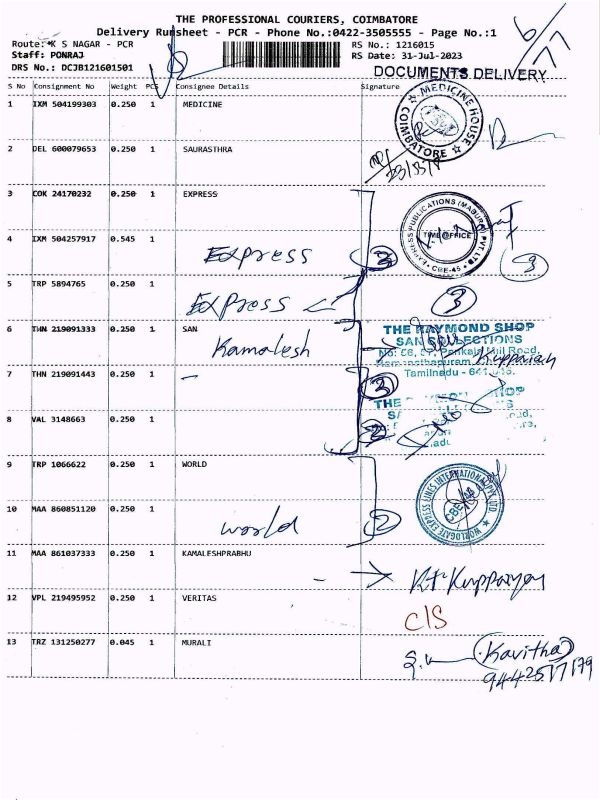 THE PROFESSIONAL COURIERS, COIMBATORE
Delivery Runsheet - PCR - Phone No.:0422-3505555 - Page No.:1
6/77
Route:*K S NAGAR - PCR
RS No.: 1216015
Staff: PONRAJ
RS Date: 31-Jul-2023
DRS No.: DCJB121601501
DOCUMENTS DELIVERY
S No Consignment No Weight PCS Consignee Details Signature
1 IXM 504199303 0.250 1 MEDICINE
MEDICINE HOUSE COIMBATORE
2 DEL 600079653 0.250 1 SAURASTHRA
3 COK 24170232 0.250 1 EXPRESS
EXPRESS PUBLICATIONS (MADURAI) PVT. LTD. CBE-45
TIME OFFICE
4 IXM 504257917 0.545 1
Express 3 3
5 TRP 5894765 0.250 1
Express 3
6 THN 219091333 0.250 1 SAN
Kamalesh
THE RAYMOND SHOP
SAN COLLECTIONS
Tamilnadu - 641
7 THN 219091443 0.250 1
3
8 VAL 3148663 0.250 1
2
9 TRP 1066622 0.250 1 WORLD
WORLDGATE EXPRESS LINES INTERNATIONAL PVT LTD
CBE
10 MAA 860851120 0.250 1
World 2
11 MAA 861037333 0.250 1 KAMALESHPRABHU
12 VPL 219495952 0.250 1 VERITAS
C/S
13 TRZ 131250277 0.045 1 MURALI
(Kavitha)